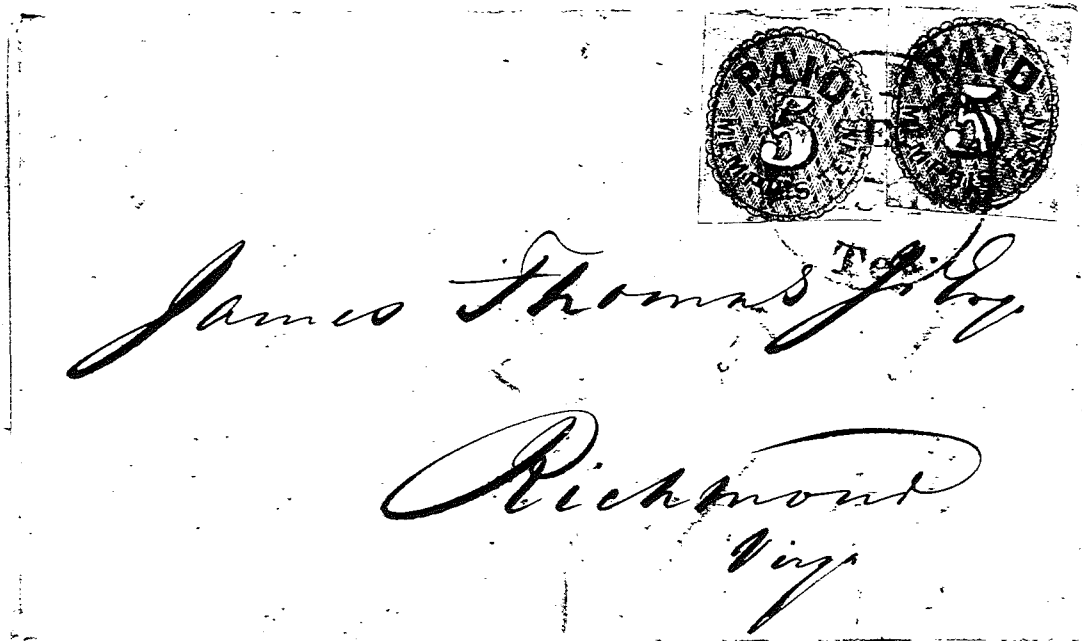 PAID 5 MEMPHIS TENN.
PAID 5 MEMPHIS TENN.
Ten.
James Thomas Jr Esq.
Richmond
Virga